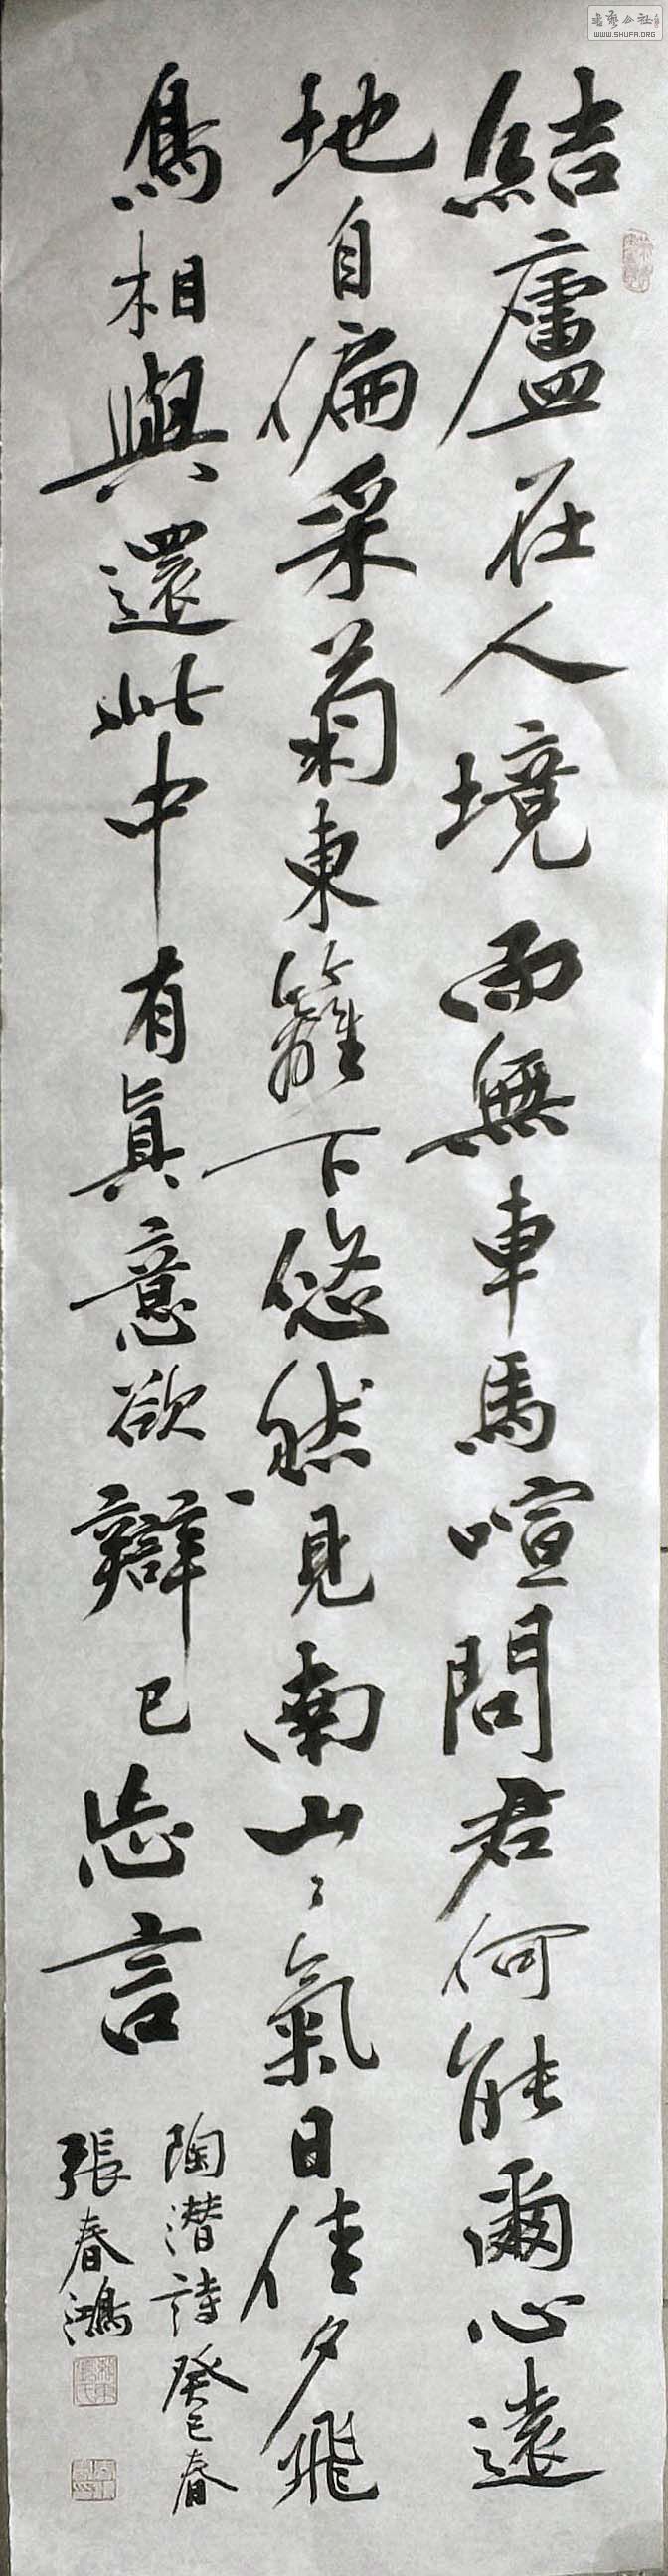 結廬在人境而無車馬喧問君何能爾心遠
地自偏采菊東籬下悠然見南山〻氣日佳夕飛
鳥相與還此中有真意欲辯已忘言
陶潛詩癸巳春
張春鴻
WWW.SHUFA.ORG